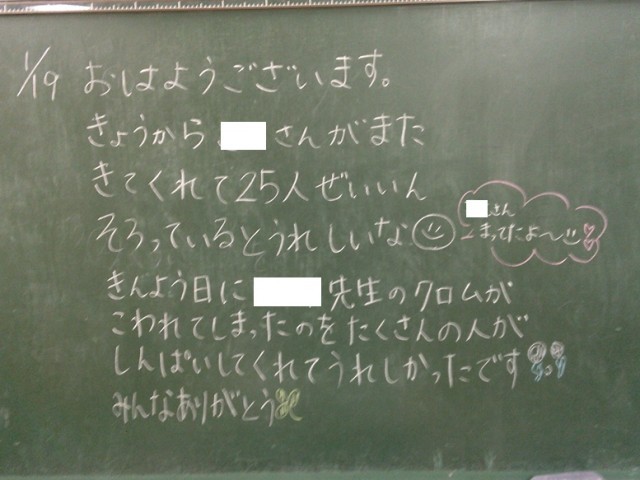 1/19 おはようございます。
きょうから さんがまた
きてくれて25人ぜいいん
そろっているとうれしいな
さん
まってたよ〜
きんよう日に 先生のクロムが
こわれてしまったのをたくさんの人が
しんぱいしてくれてうれしかったです
みんなありがとう